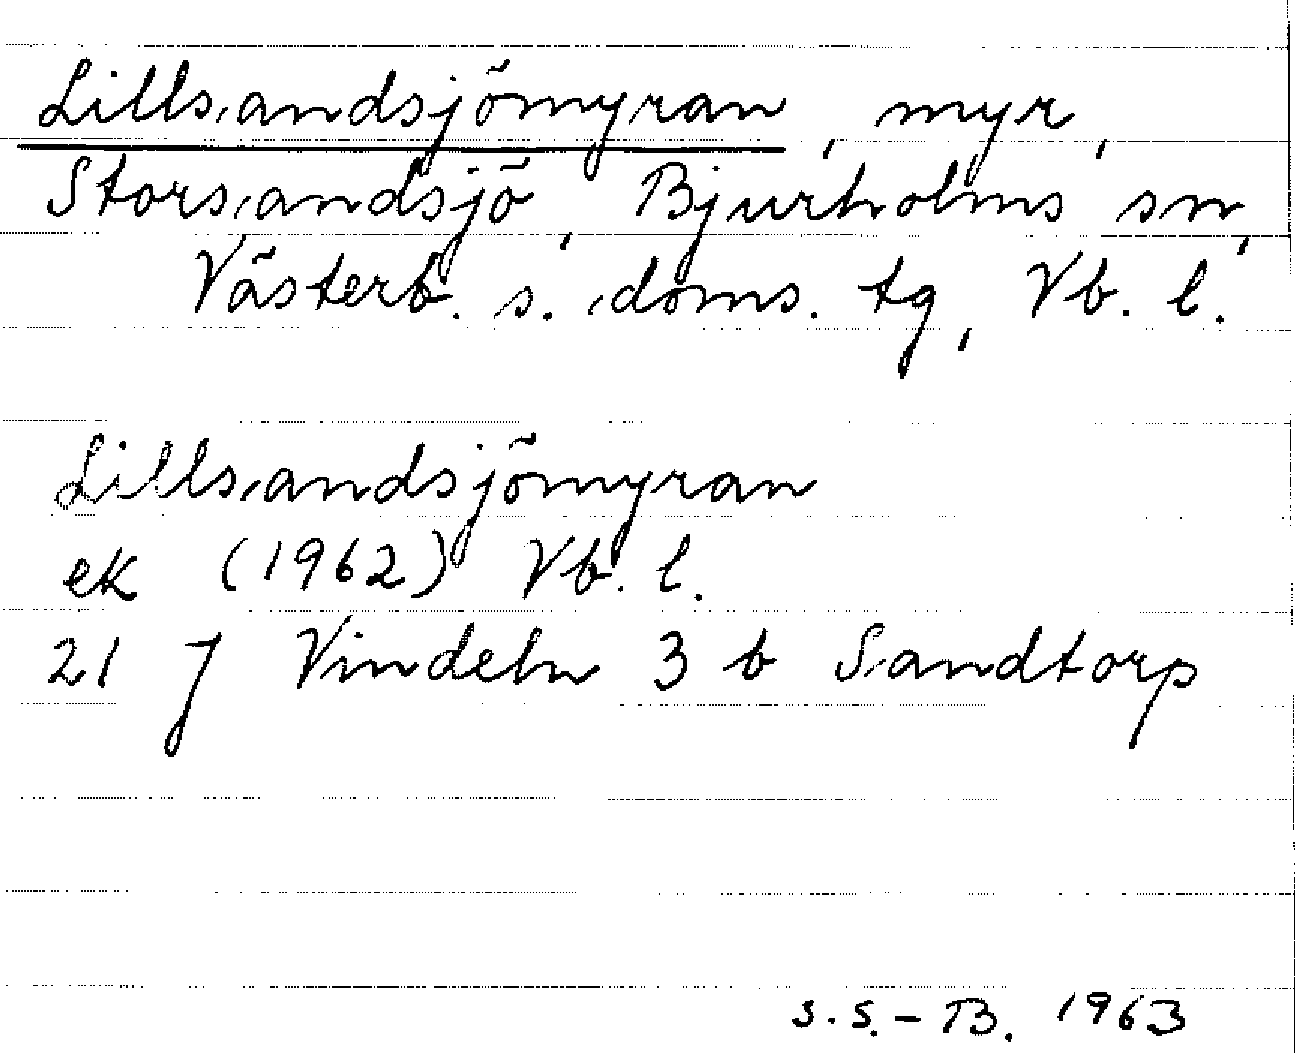 Lillsandsjömyran, myr,
Storsandsjö, Bjurholms sn,
Västerb. s. doms. tg, Vb. l.
Lillsandsjömyran
ek (1962) Vb. l.
21 J Vindeln 3 b Sandtorp
S.S.-B. 1963